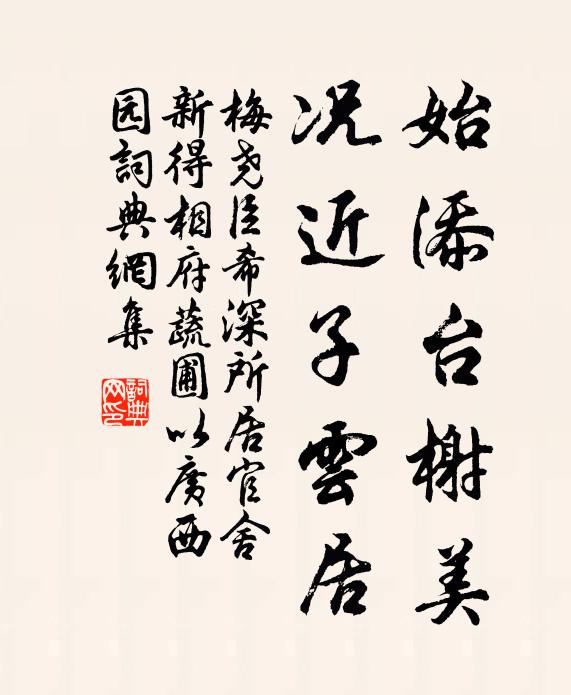 始添台榭美
况近子雲居
梅尧臣希深所居官舍
新得相府蔬圃以廣西
园詞典網集
詞典
网印